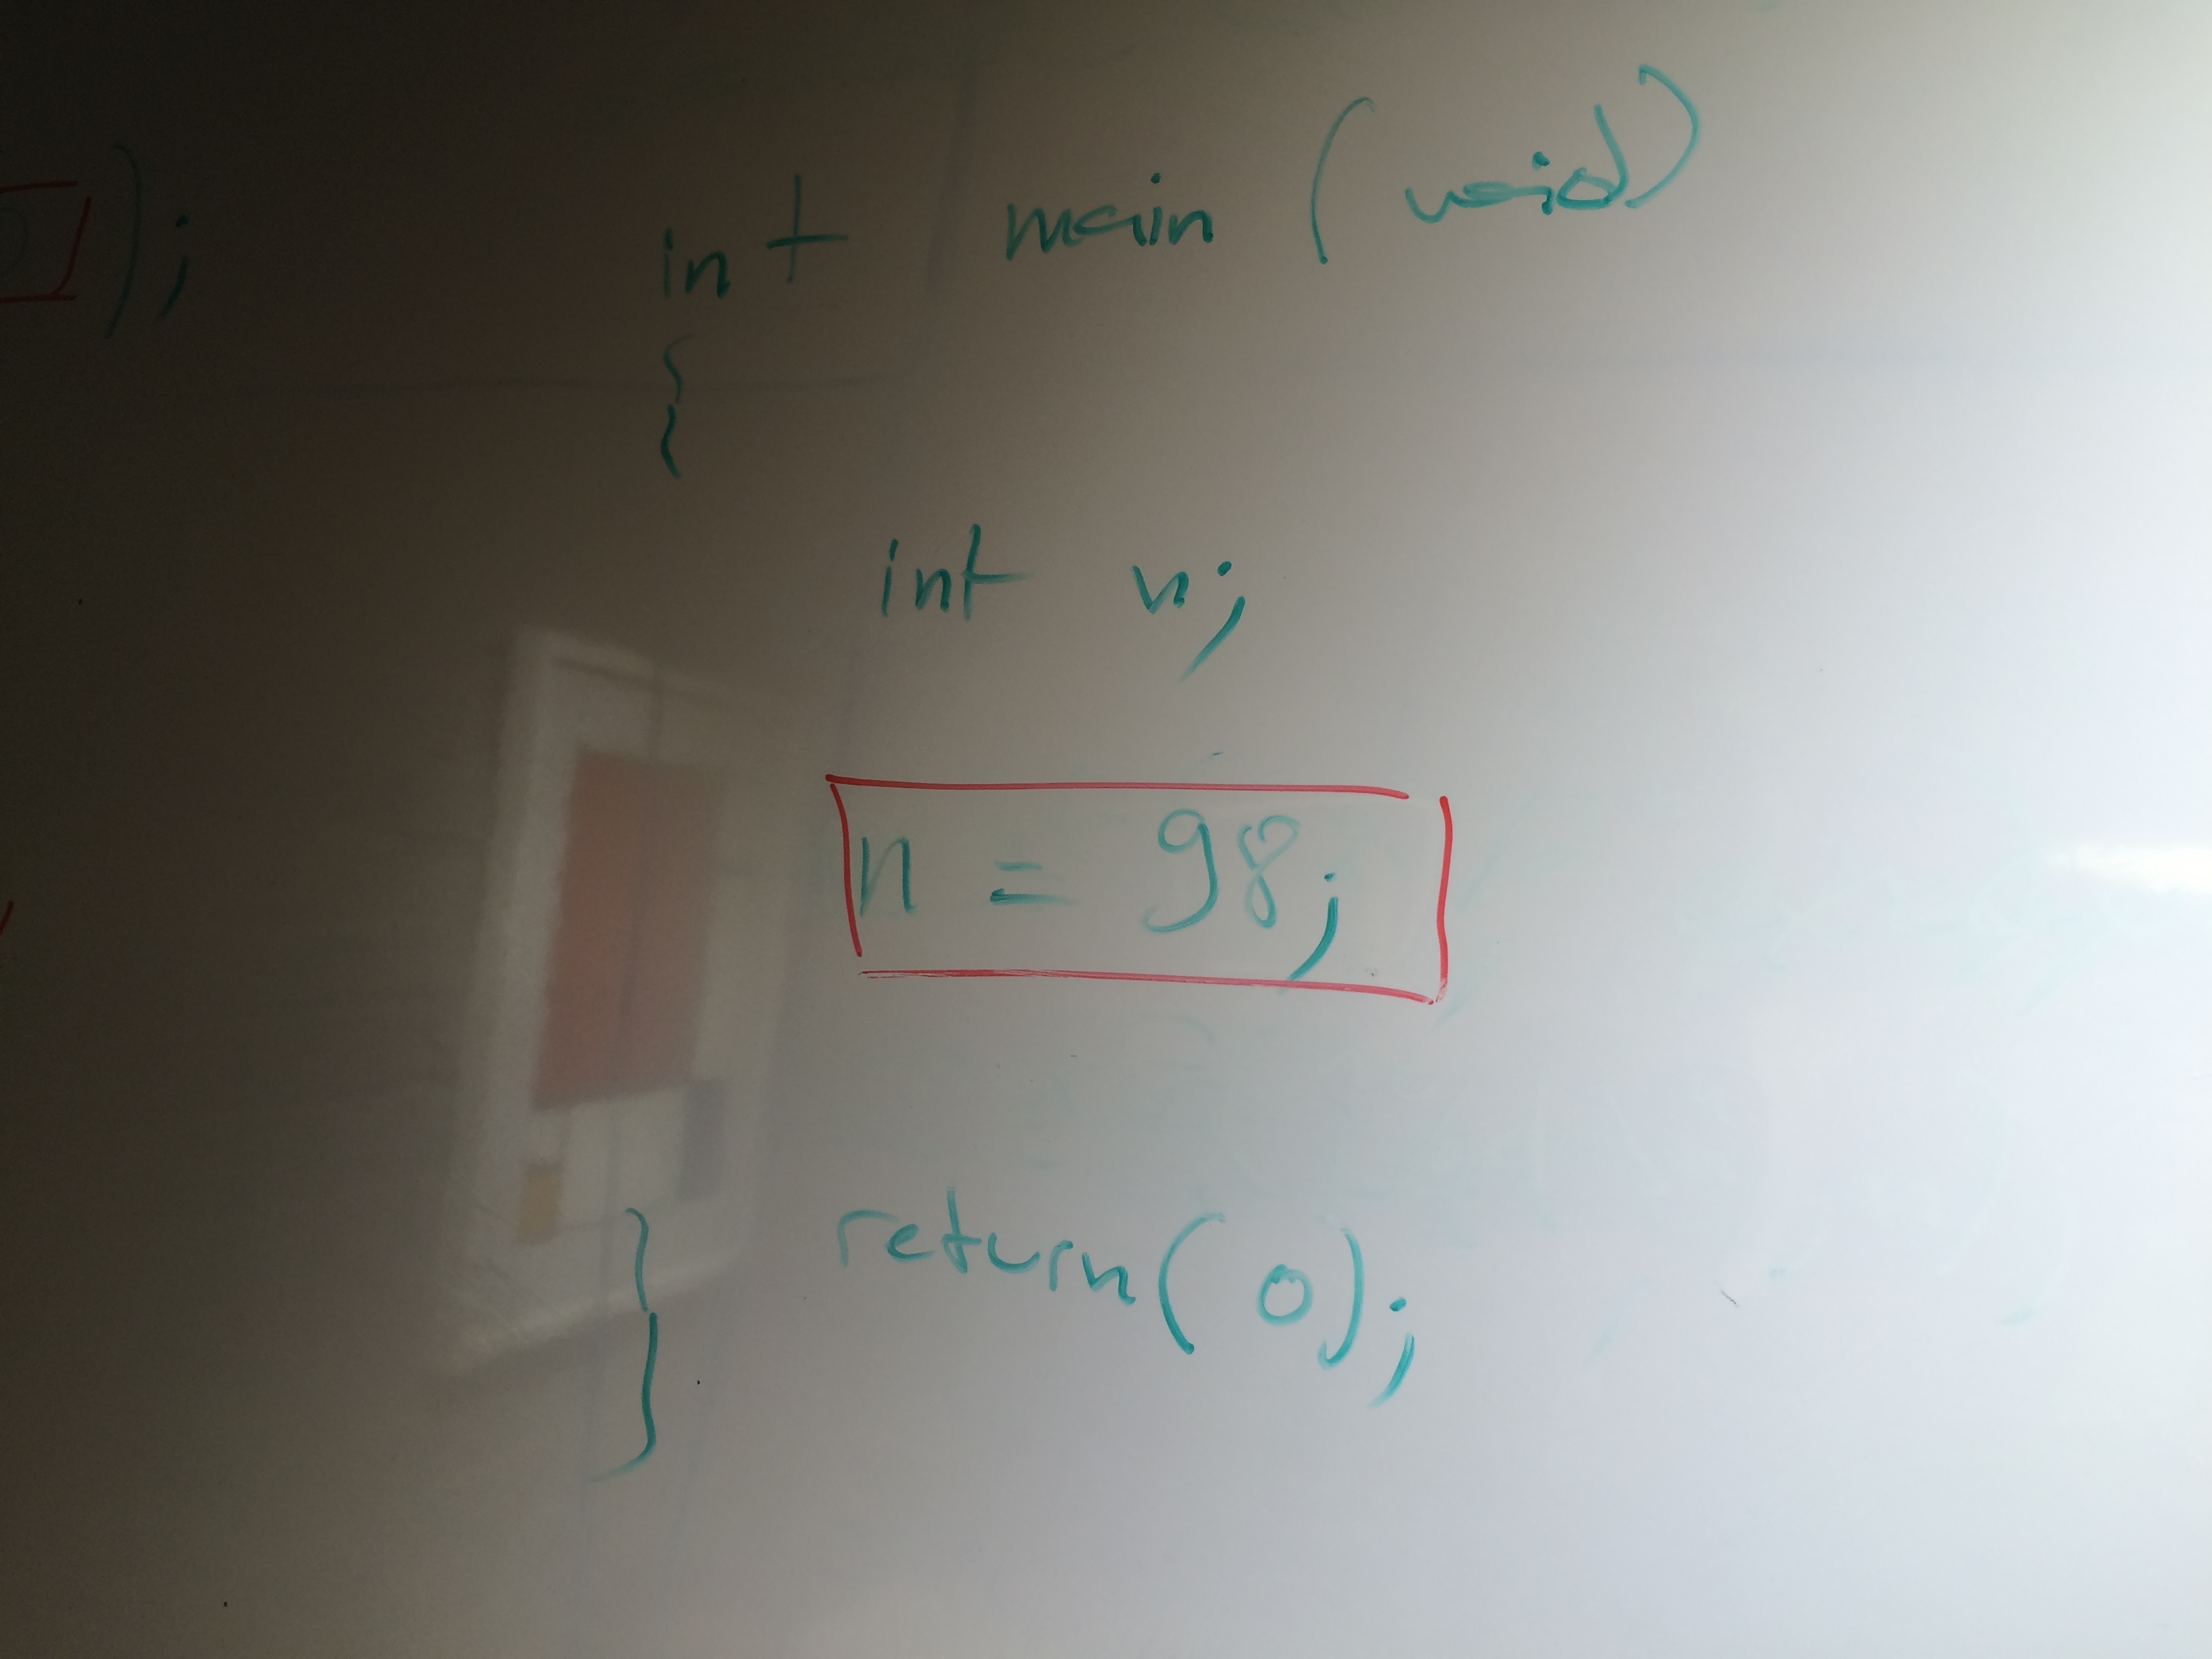 );
int main (void)
{
int n;
n = 98;
return(0);
}